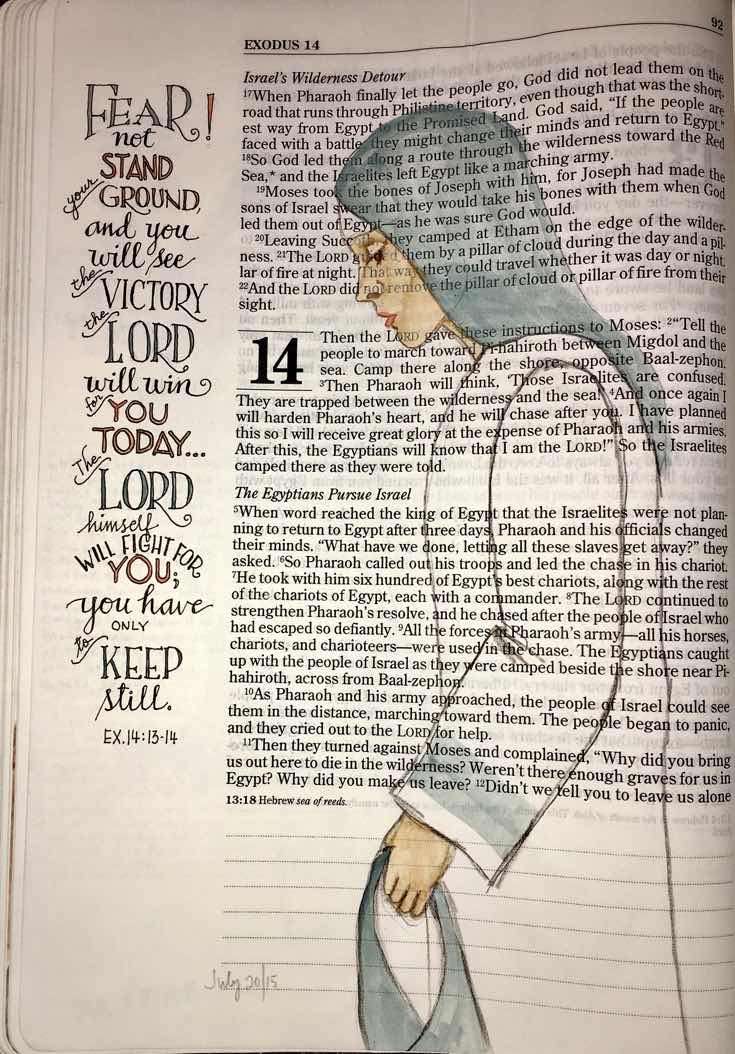 92
EXODUS 14
FEAR!
not
STAND
your
GROUND,
and you
will see
the
VICTORY
the
LORD
will win
for
YOU
TODAY...
The
LORD
himself
WILL FIGHT FOR
YOU;
you have
ONLY
to
KEEP
still.
EX.14:13-14
Israel's Wilderness Detour
17When Pharaoh finally let the people go, God did not lead them on the
road that runs through Philistine territory, even though that was the short-
est way from Egypt to the Promised Land. God said, "If the people are
faced with a battle, they might change their minds and return to Egypt."
18So God led them along a route through the wilderness toward the Red
Sea,* and the Israelites left Egypt like a marching army.
19Moses took the bones of Joseph with him, for Joseph had made the
sons of Israel swear that they would take his bones with them when God
led them out of Egypt—as he was sure God would.
20Leaving Succoth, they camped at Etham on the edge of the wilder-
ness. 21The LORD guided them by a pillar of cloud during the day and a pil-
lar of fire at night. That way they could travel whether it was day or night.
22And the LORD did not remove the pillar of cloud or pillar of fire from their
sight.
14 Then the LORD gave these instructions to Moses: 2"Tell the
people to march toward Pi-hahiroth between Migdol and the
sea. Camp there along the shore, opposite Baal-zephon.
3Then Pharaoh will think, 'Those Israelites are confused.
They are trapped between the wilderness and the sea!' 4And once again I
will harden Pharaoh's heart, and he will chase after you. I have planned
this so I will receive great glory at the expense of Pharaoh and his armies.
After this, the Egyptians will know that I am the LORD!" So the Israelites
camped there as they were told.
The Egyptians Pursue Israel
5When word reached the king of Egypt that the Israelites were not plan-
ning to return to Egypt after three days, Pharaoh and his officials changed
their minds. "What have we done, letting all these slaves get away?" they
asked. 6So Pharaoh called out his troops and led the chase in his chariot.
7He took with him six hundred of Egypt's best chariots, along with the rest
of the chariots of Egypt, each with a commander. 8The LORD continued to
strengthen Pharaoh's resolve, and he chased after the people of Israel who
had escaped so defiantly. 9All the forces in Pharaoh's army—all his horses,
chariots, and charioteers—were used in the chase. The Egyptians caught
up with the people of Israel as they were camped beside the shore near Pi-
hahiroth, across from Baal-zephon.
10As Pharaoh and his army approached, the people of Israel could see
them in the distance, marching toward them. The people began to panic,
and they cried out to the LORD for help.
11Then they turned against Moses and complained, "Why did you bring
us out here to die in the wilderness? Weren't there enough graves for us in
Egypt? Why did you make us leave? 12Didn't we tell you to leave us alone
13:18 Hebrew sea of reeds.
July 20/15